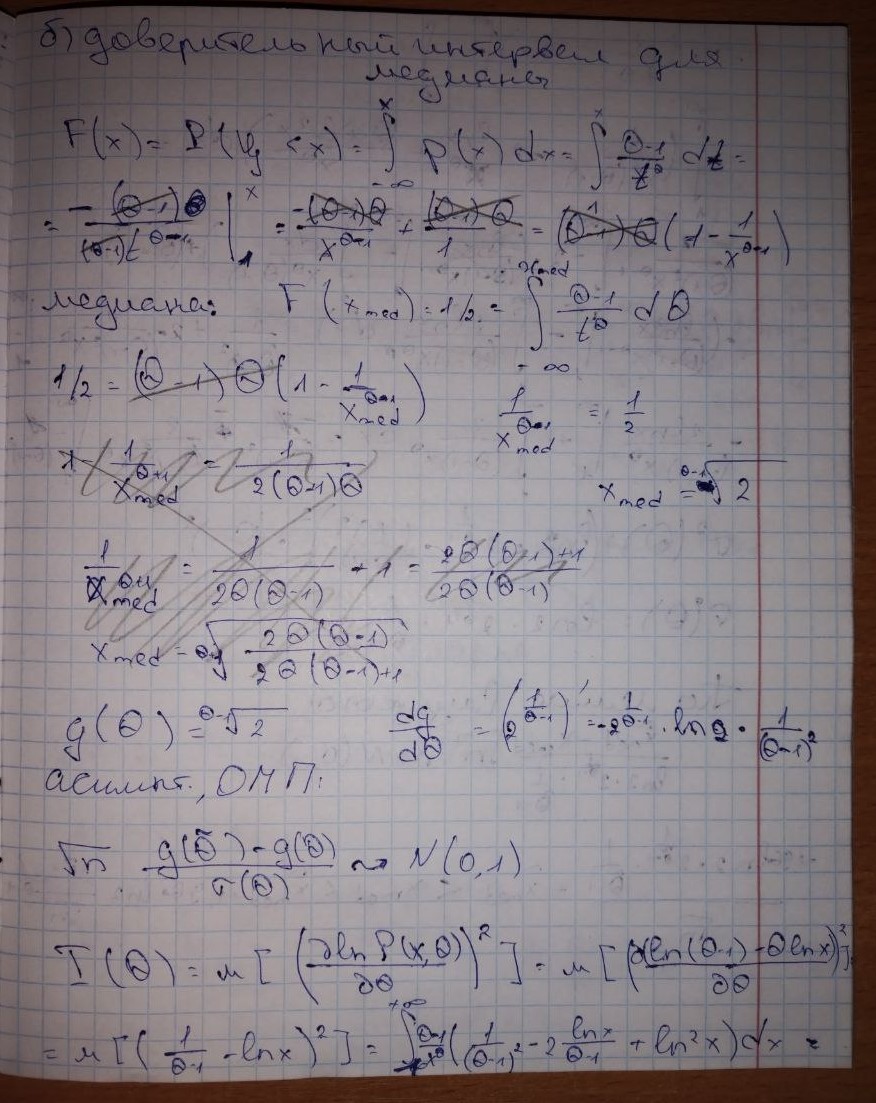 б) доверительный интервал для
медианы
F(x) = P(ξ < x) = ∫_{-∞}^{x} p(x) dx = ∫^{x} (θ-1)/t^θ dt =
= -(θ-1)θ/((θ-1)t^{θ-1}) |_1^x = -(θ-1)θ/x^{θ-1} + (θ-1)θ/1 = (θ-1)θ(1 - 1/x^{θ-1})
медиана: F(x_med) = 1/2 = ∫_{-∞}^{x_med} (θ-1)/t^θ dθ
1/2 = (θ-1)θ(1 - 1/x_med^{θ-1}) 1/x_med^{θ-1} = 1/2
1/x_med^{θ+1} = 1/(2(θ-1)θ) x_med = ^{θ-1}√2
1/x_med^{θ+1} = 1/(2θ(θ-1)) + 1 = (2θ(θ-1)+1)/(2θ(θ-1))
x_med = ^{θ+1}√(2θ(θ-1)/(2θ(θ-1)+1))
g(θ) = ^{θ-1}√2 dg/dθ = (2^{1/(θ-1)})' = -2^{1/(θ-1)} · ln2 · 1/(θ-1)^2
асимпт., ОМП:
√n (g(θ̃) - g(θ))/σ(θ) ⇝ N(0,1)
I(θ) = м[(∂ln P(x,θ)/∂θ)^2] = м[(∂(ln(θ-1) - θ lnx)/∂θ)^2] =
= м[(1/(θ-1) - lnx)^2] = ∫_1^{+∞} (θ-1)/x^θ (1/(θ-1)^2 - 2 lnx/(θ-1) + ln^2 x) dx =